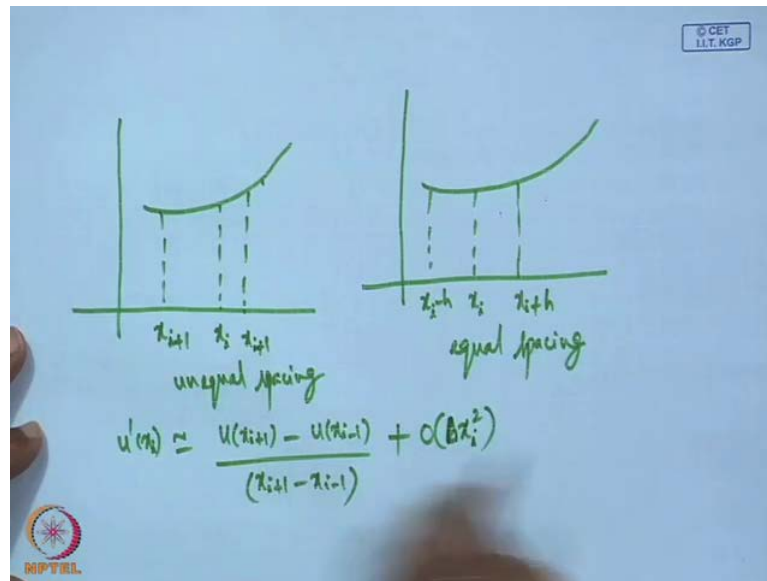 © CET
I.I.T. KGP
x_{i+1} x_i x_{i+1}
unequal spacing
x_i-h x_i x_i+h
equal spacing
u'(x_i) ≃ \frac{u(x_{i+1}) - u(x_{i-1})}{(x_{i+1} - x_{i-1})} + O(Δx_i^2)
NPTEL